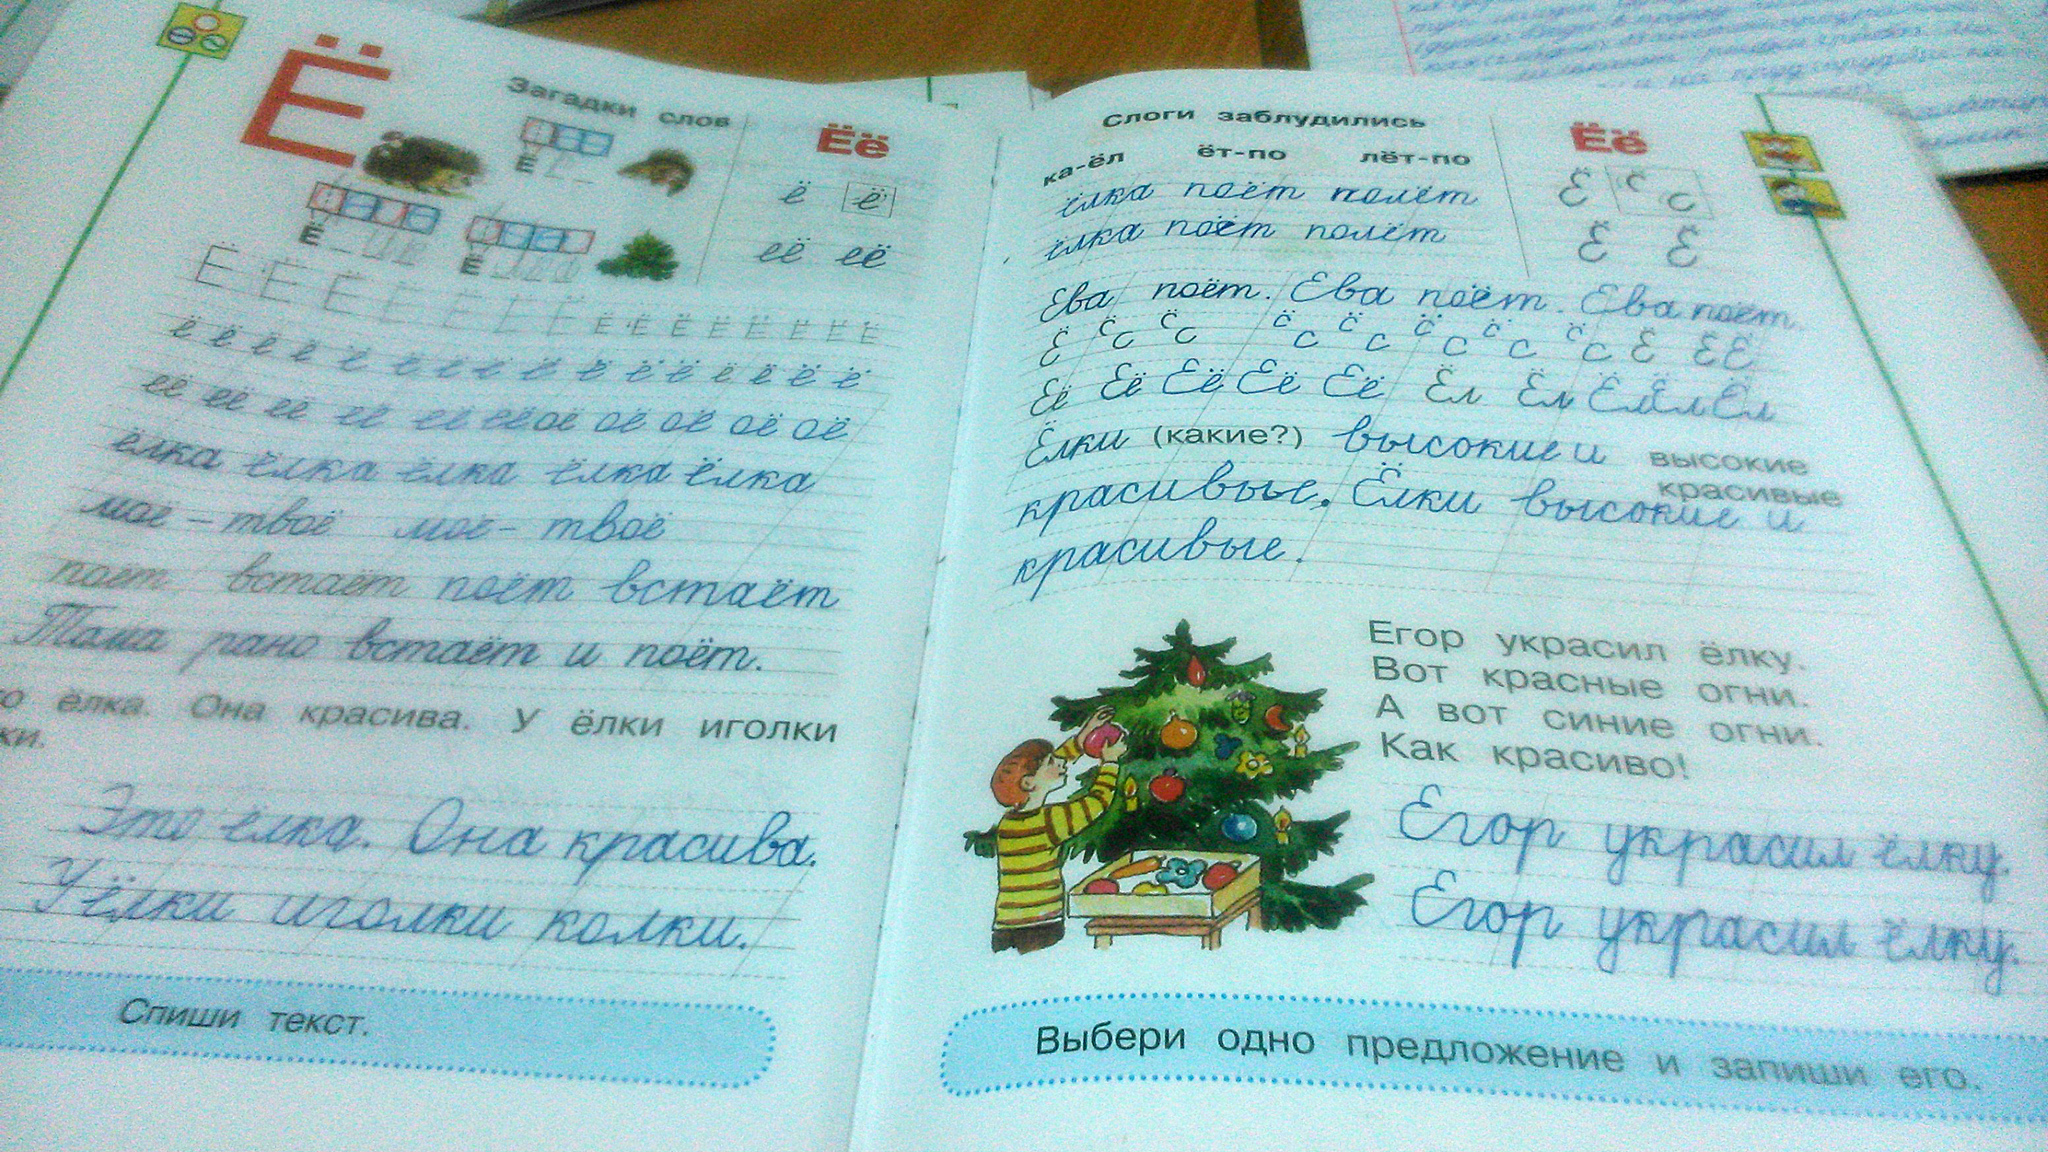 Ё
Загадки слов
Ёё
ё ё
её её
Ё Ё Ё Ё Ё Ё Ё Ё Ё Ё Ё Ё Ё Ё Ё
ё ё ё ё ё ё ё ё ё ё ё ё ё ё ё ё
её её её её её её оё оё оё оё оё
ёлка ёлка ёлка ёлка ёлка
моё - твоё моё - твоё
поёт встаёт поёт встаёт
Тома рано встаёт и поёт.
ёлка. Она красива. У ёлки иголки
ки.
Это ёлка. Она красива.
У ёлки иголки колки.
Спиши текст.
Слоги заблудились
ка-ёл ёт-по лёт-по
ёлка поёт полёт
ёлка поёт полёт
Ёё
Ё
Ё Ё
Ева поёт. Ева поёт. Ева поёт.
Её Её Её Её Её Ёл Ёл Ёл Ёл Ёл
Ёлки (какие?) высокие и
высокие
красивые
красивые. Ёлки высокие и
красивые.
Егор украсил ёлку.
Вот красные огни.
А вот синие огни.
Как красиво!
Егор украсил ёлку.
Егор украсил ёлку.
Выбери одно предложение и запиши его.